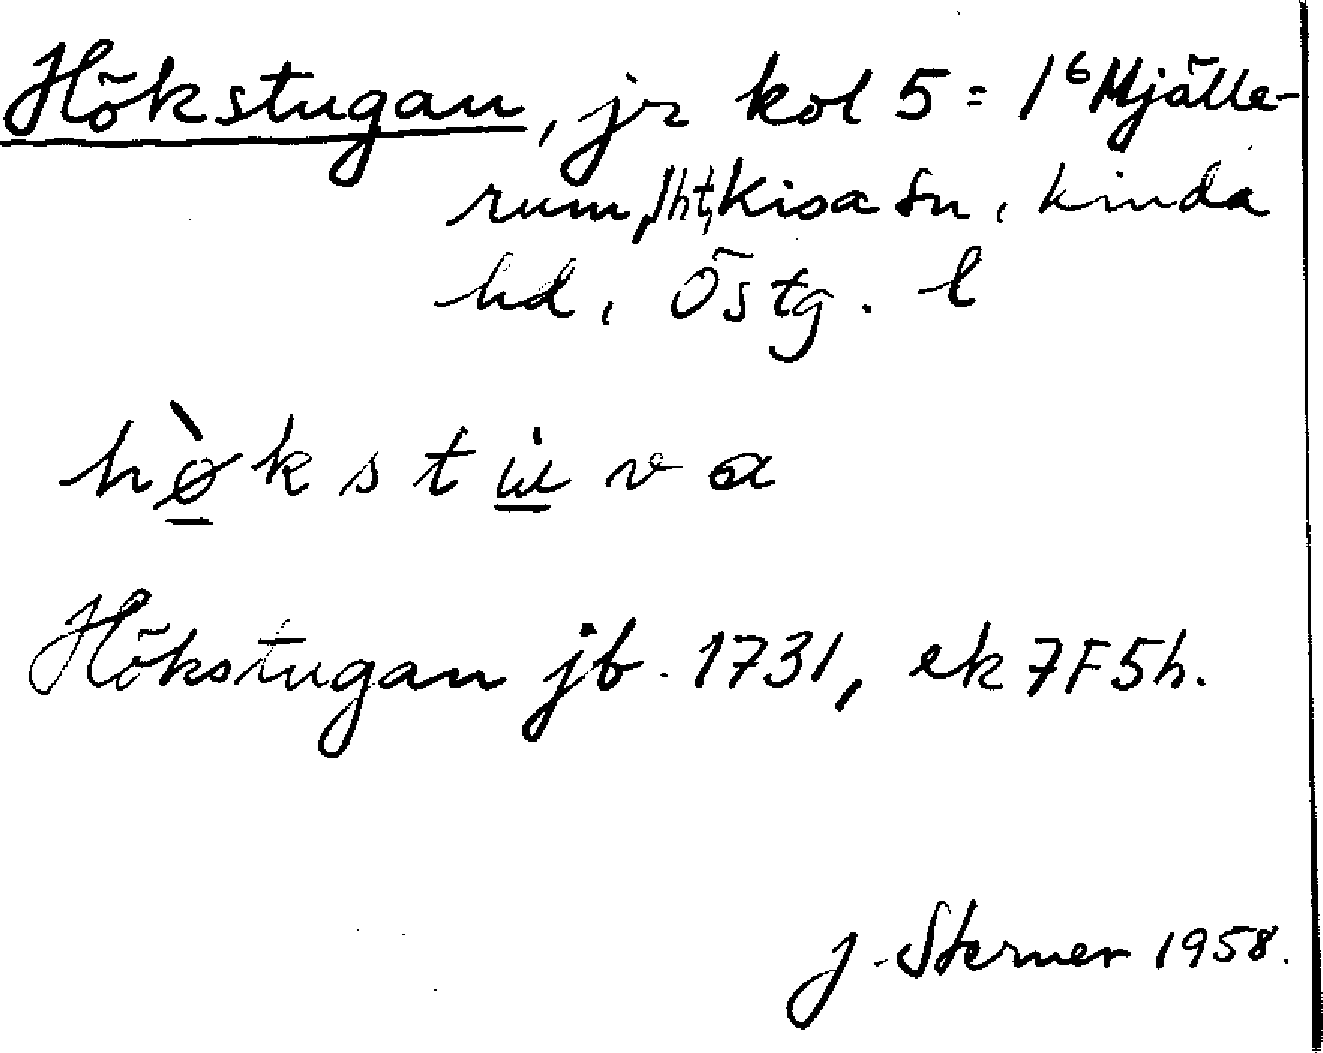 Hökstugan, jr kol 5 = 1⁶ Mjälle-
rum, Kisa sn, Kinda
hd, Östg. l
hø̀kstu̇va
Hökstugan jb. 1731, ek 7F5h.
J. Sterner 1958.